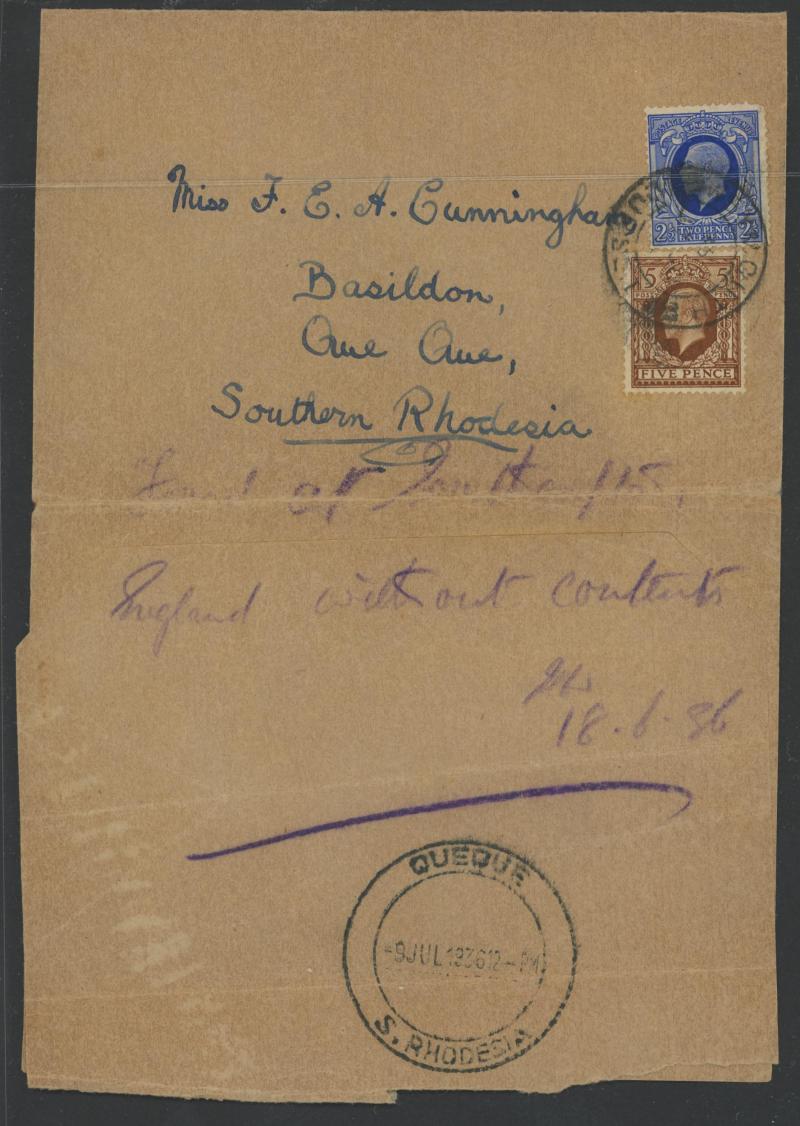 POSTAGE REVENUE
2½ TWO PENCE HALFPENNY 2½
5 5
FIVE PENCE
Miss F. E. A. Cunningham
Basildon,
Que Que,
Southern Rhodesia
Found at Southampton,
England without contents
18.6.36
QUEQUE
-9 JUL 1936 12 - PM
S. RHODESIA